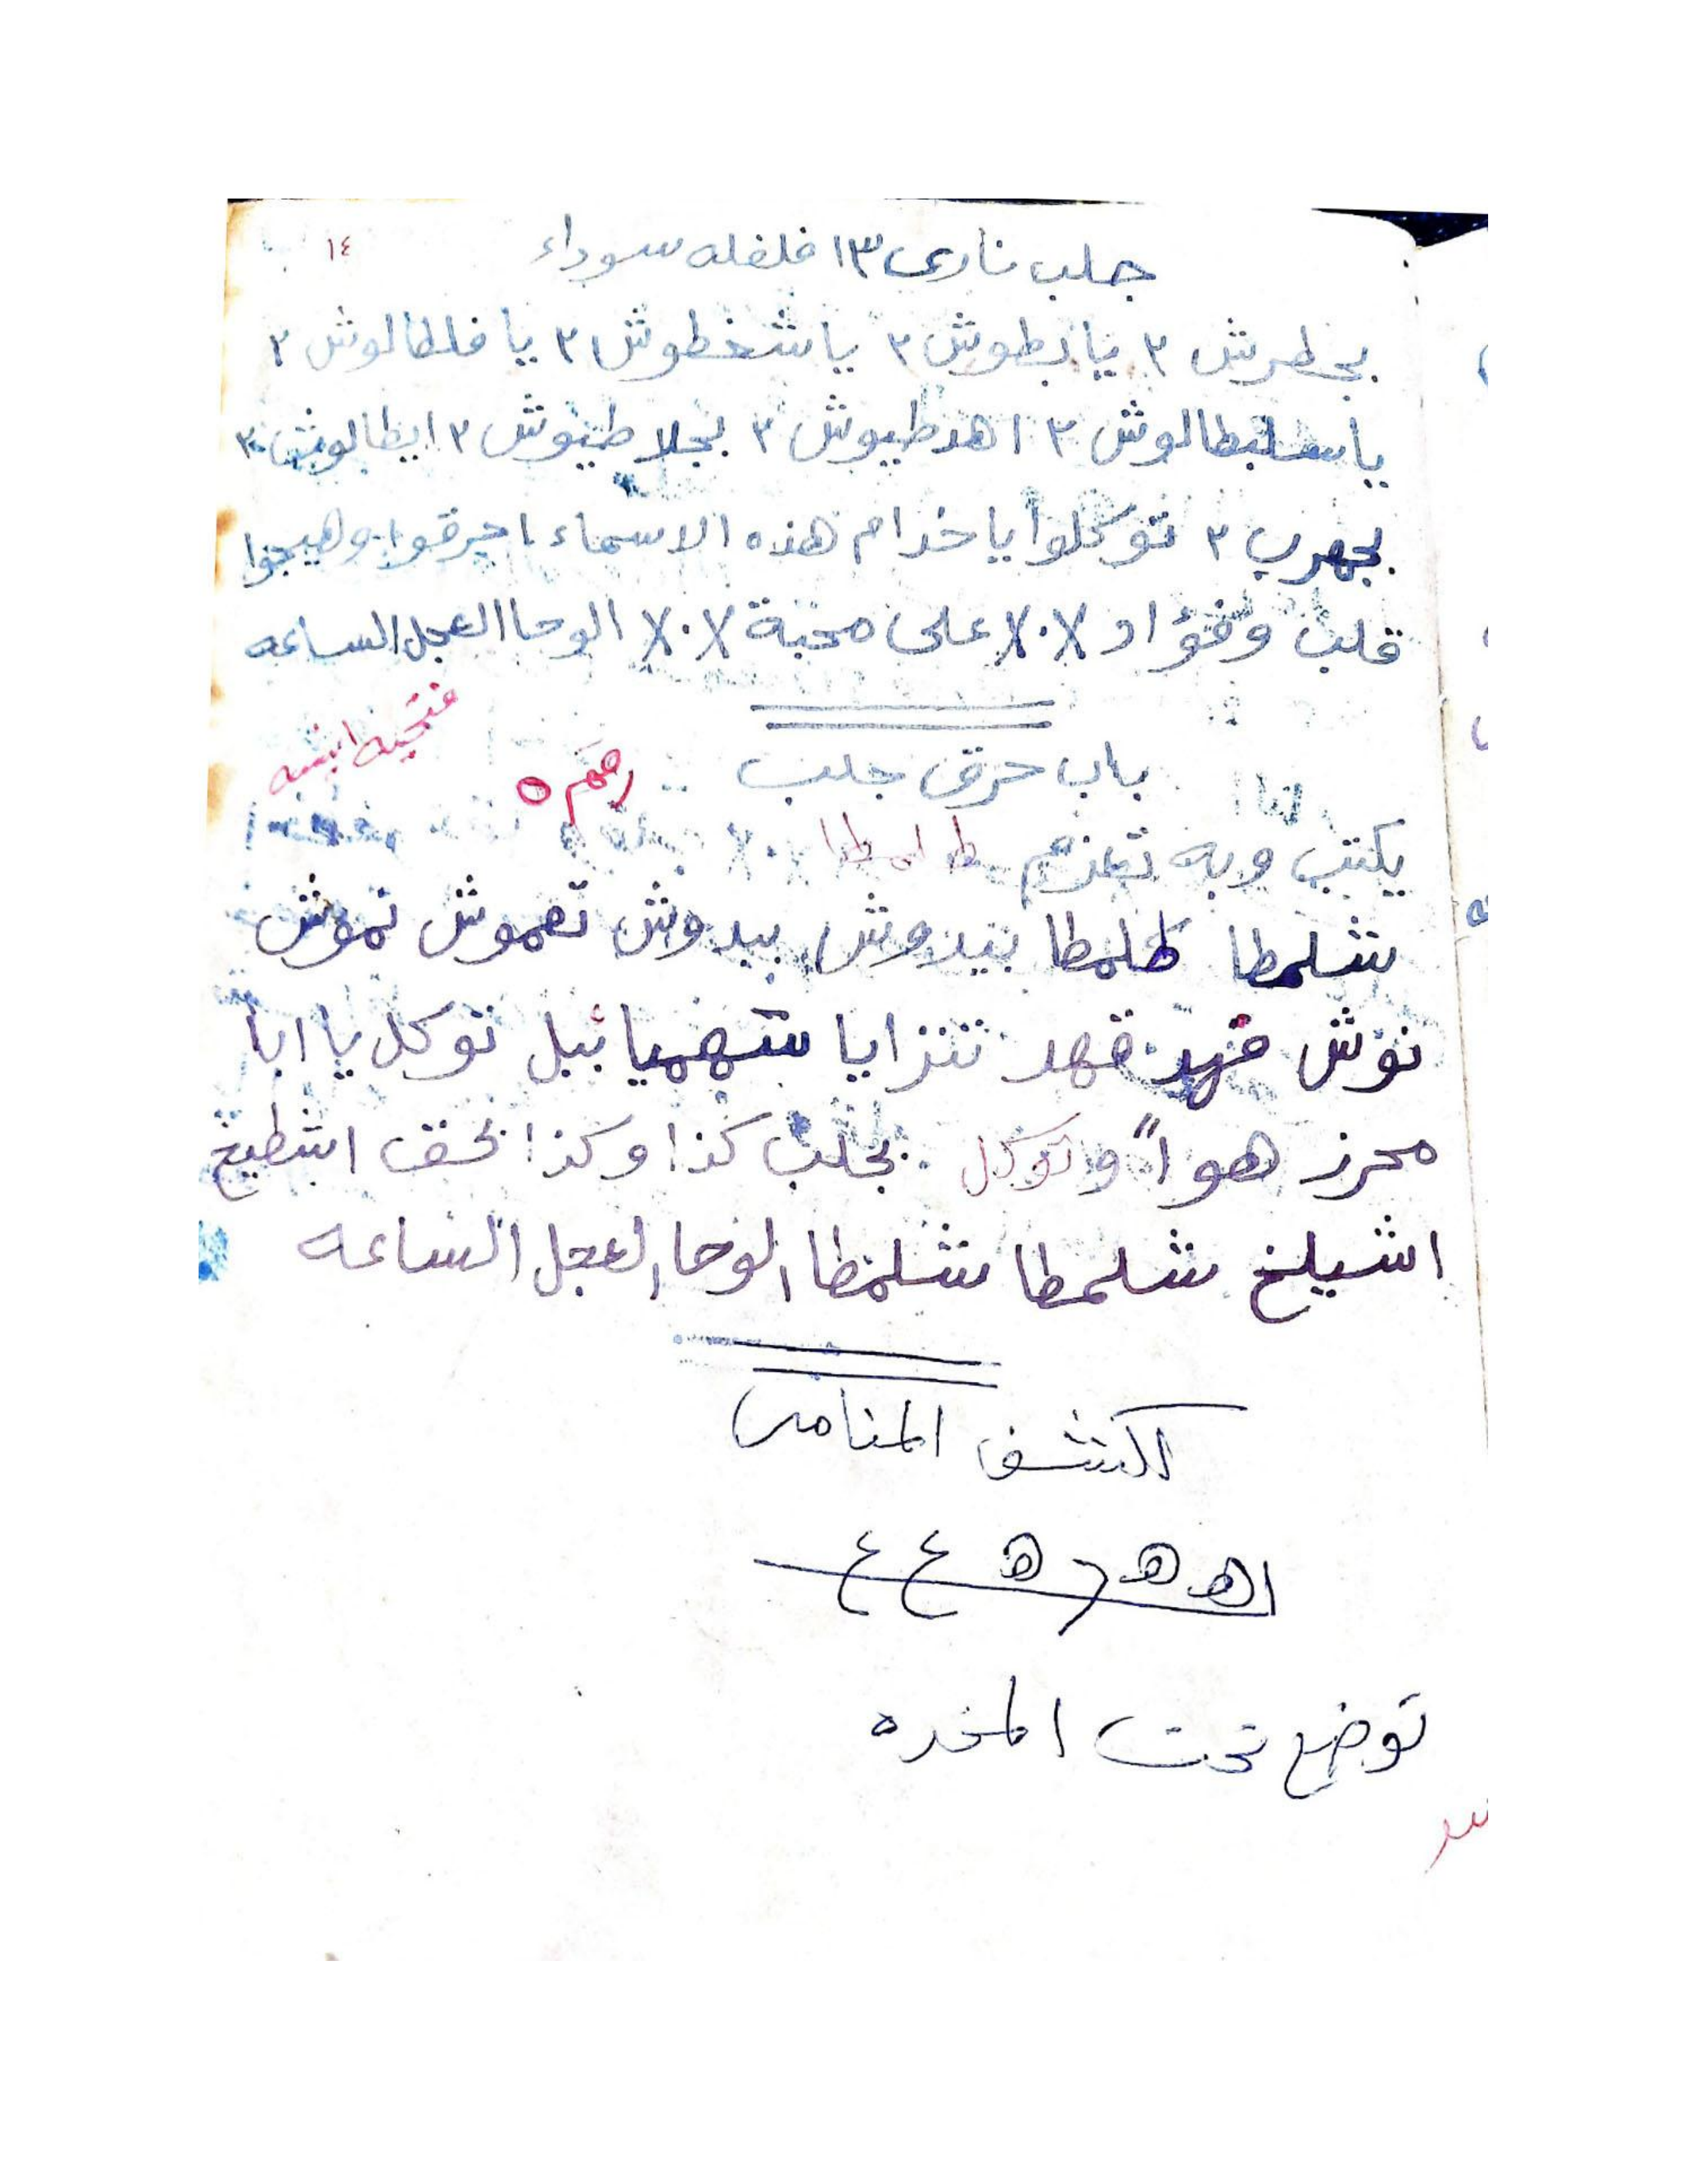 ١٤
جلب نارى ١٣ فلفله سوداء
بجطرش ٣ يا بطوش ٣ يا شخطوش ٣١ يا فلطالوش ٣
يا سلبطالوش ٣ اهدطيوش ٣ بجلا طيوش ٣ ايطالوش ٣
بجهرب ٣ توكلوا يا خدام هذه الاسماء احرقوا وهيجوا
قلب وفؤاد X٠X على محبة X٠X الوحا العجل الساعه
باب حرق جلب
رقم ٥
فتحيه
يكتب وبه تعزم طلمطا X٠X
شلمطا طلمطا بيدوش بيدوش تعموش تموش
نوش قهد قهد تنزايا سهميائيل توكل يا ابا
محرز هواً وتوكل بجلب كذا وكذا بحق اشطيخ
اشيلخ شلمطا شلمطا الوحا العجل الساعه
لكشف المنامى
اه ه ر ه ع ع
توضع تحت المخده